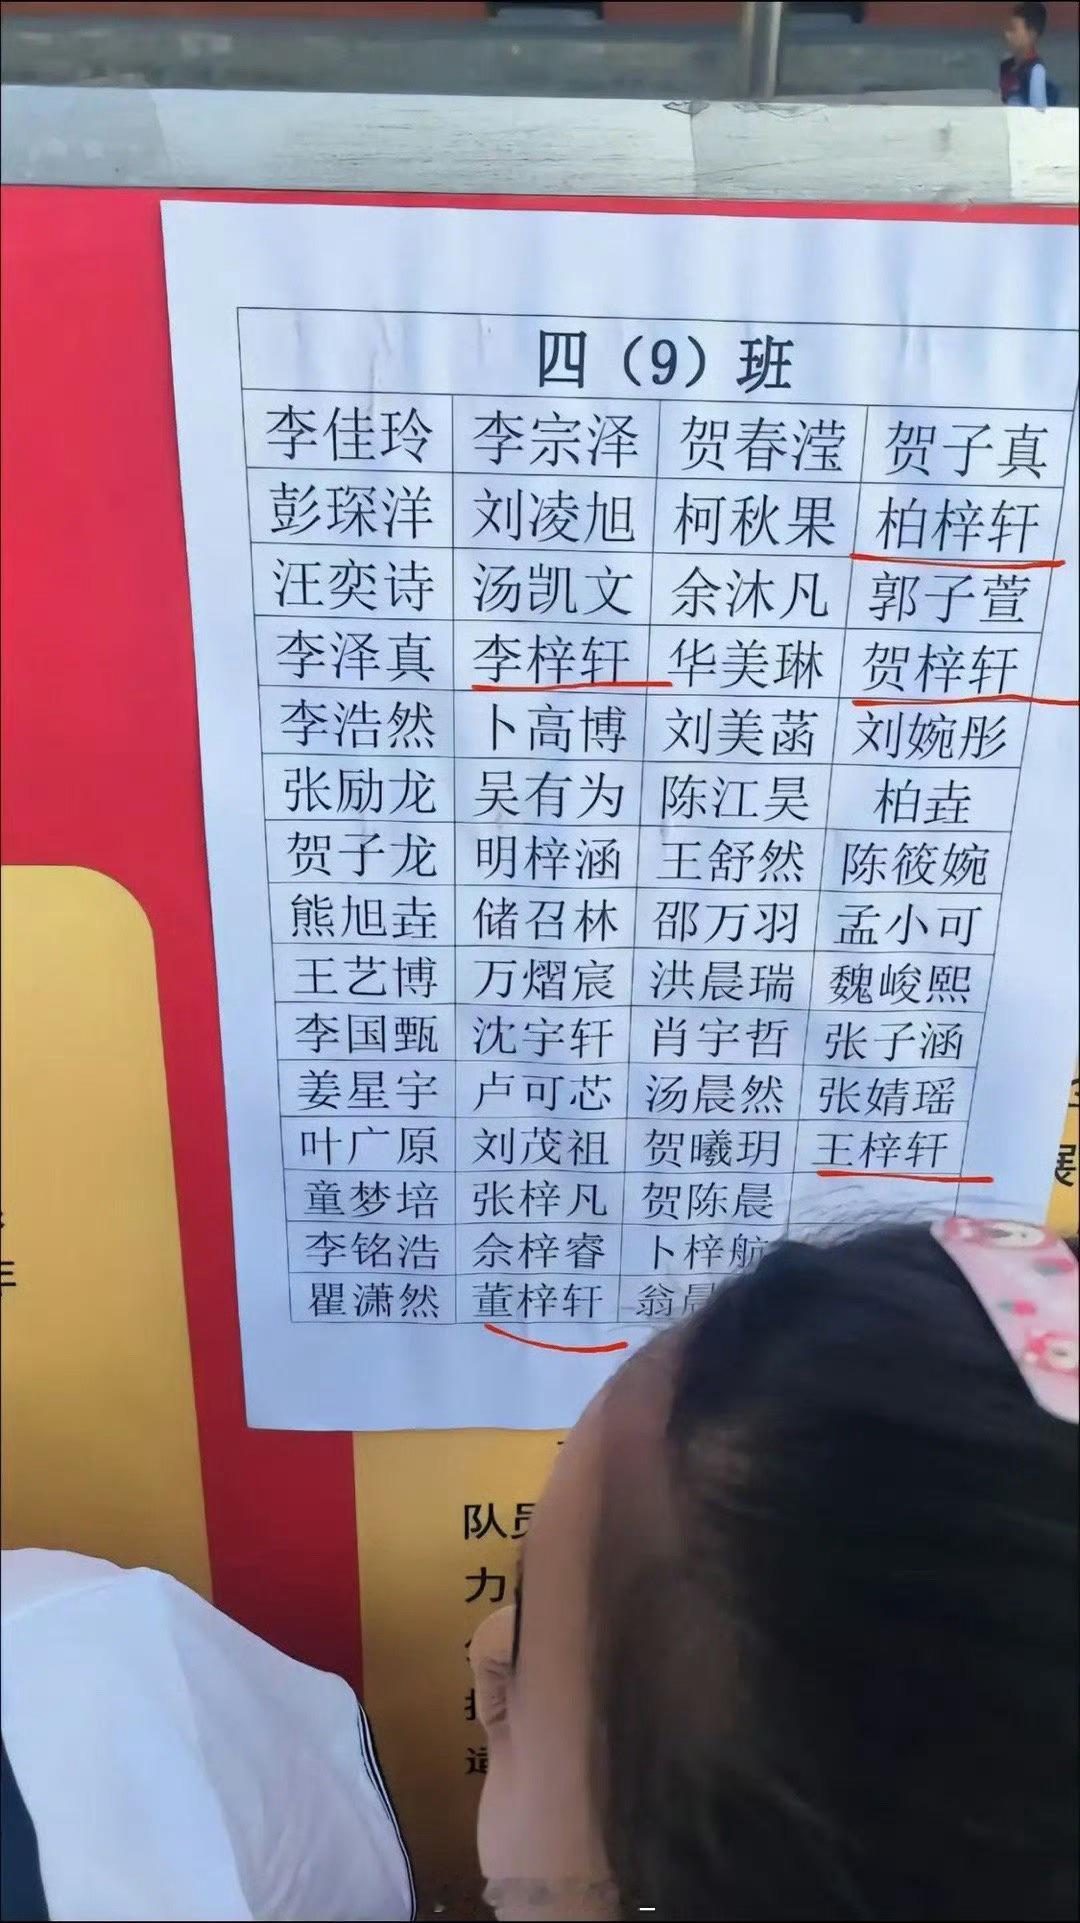 四（9）班
李佳玲 李宗泽 贺春滢 贺子真
彭琛洋 刘凌旭 柯秋果 柏梓轩
汪奕诗 汤凯文 余沐凡 郭子萱
李泽真 李梓轩 华美琳 贺梓轩
李浩然 卜高博 刘美菡 刘婉彤
张励龙 吴有为 陈江昊 柏垚
贺子龙 明梓涵 王舒然 陈筱婉
熊旭垚 储召林 邵万羽 孟小可
王艺博 万熠宸 洪晨瑞 魏峻熙
李国甄 沈宇轩 肖宇哲 张子涵
姜星宇 卢可芯 汤晨然 张婧瑶
叶广原 刘茂祖 贺曦玥 王梓轩
童梦培 张梓凡 贺陈晨
李铭浩 余梓睿 卜梓航
瞿潇然 董梓轩 翁晨
队员
力